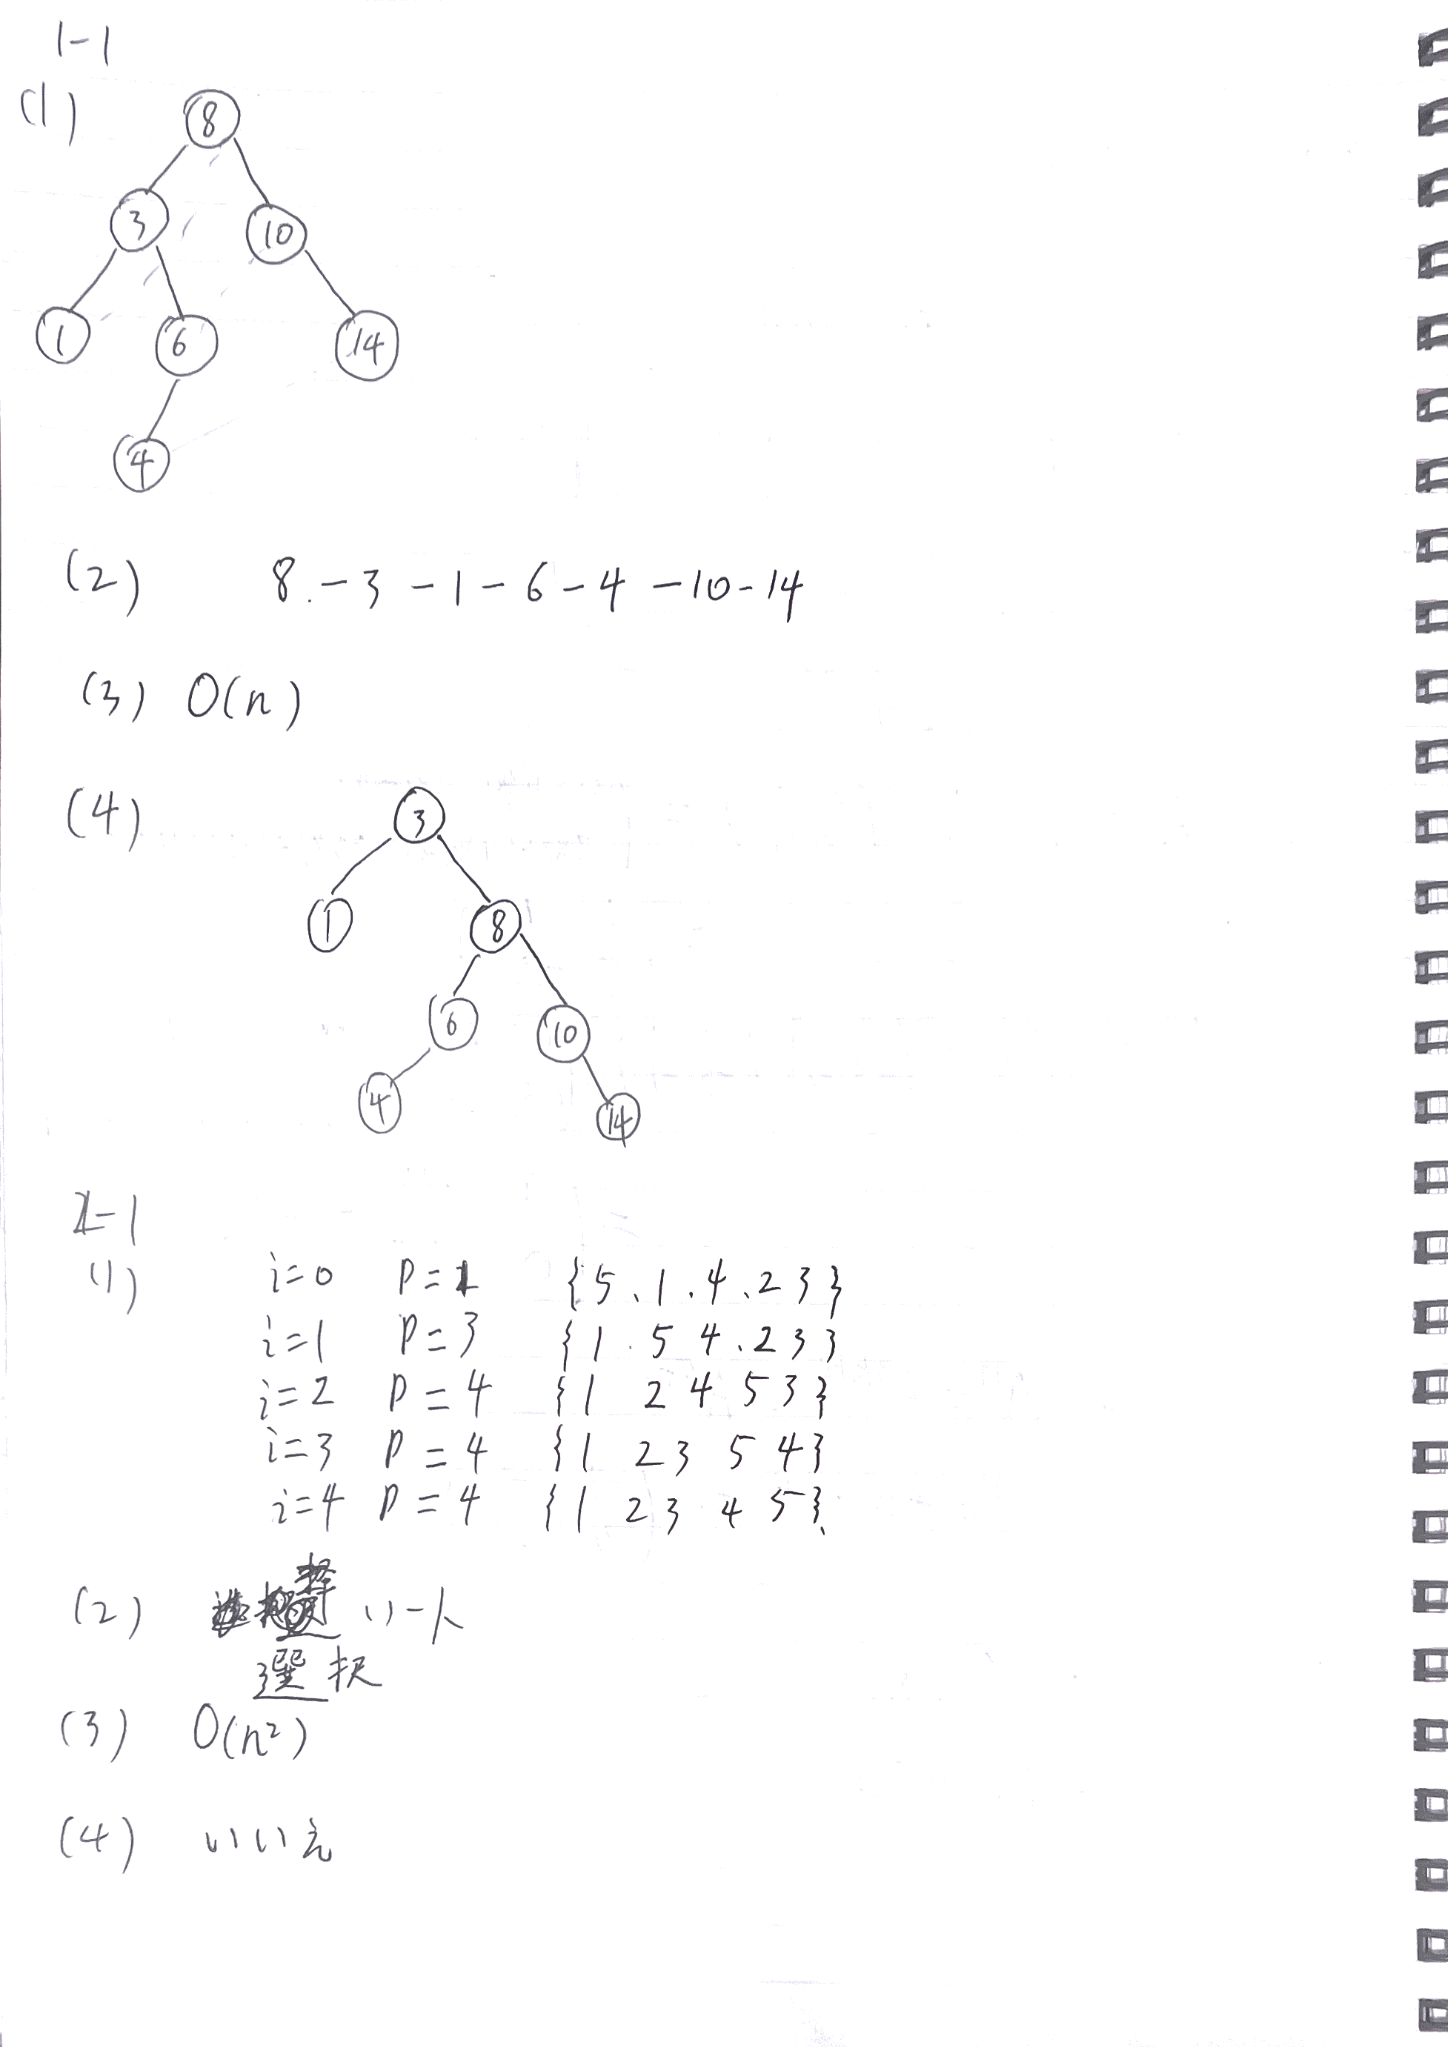 1-1
(1)
8
3 10
1 6 14
4
(2) 8-3-1-6-4-10-14
(3) O(n)
(4)
3
1 8
6 10
4 14
2-1
(1) i=0 P=1 {5、1.4、23}
i=1 P=3 {1.54.233
i=2 P=4 {1 2 4 53}
i=3 P=4 {1 23 5 4}
i=4 P=4 {1 23 4 5}
(2) 択 ソート
選択
(3) O(n²)
(4) いいえ